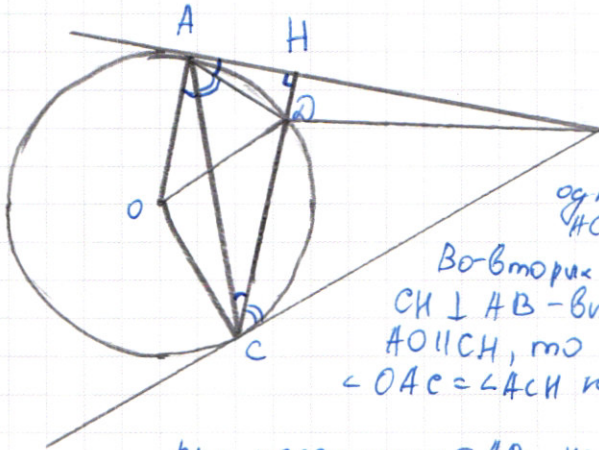 A
H
D
O
C
Во-вторых
CH ⊥ AB - вы
AO || CH, то
∠OAC = ∠ACH